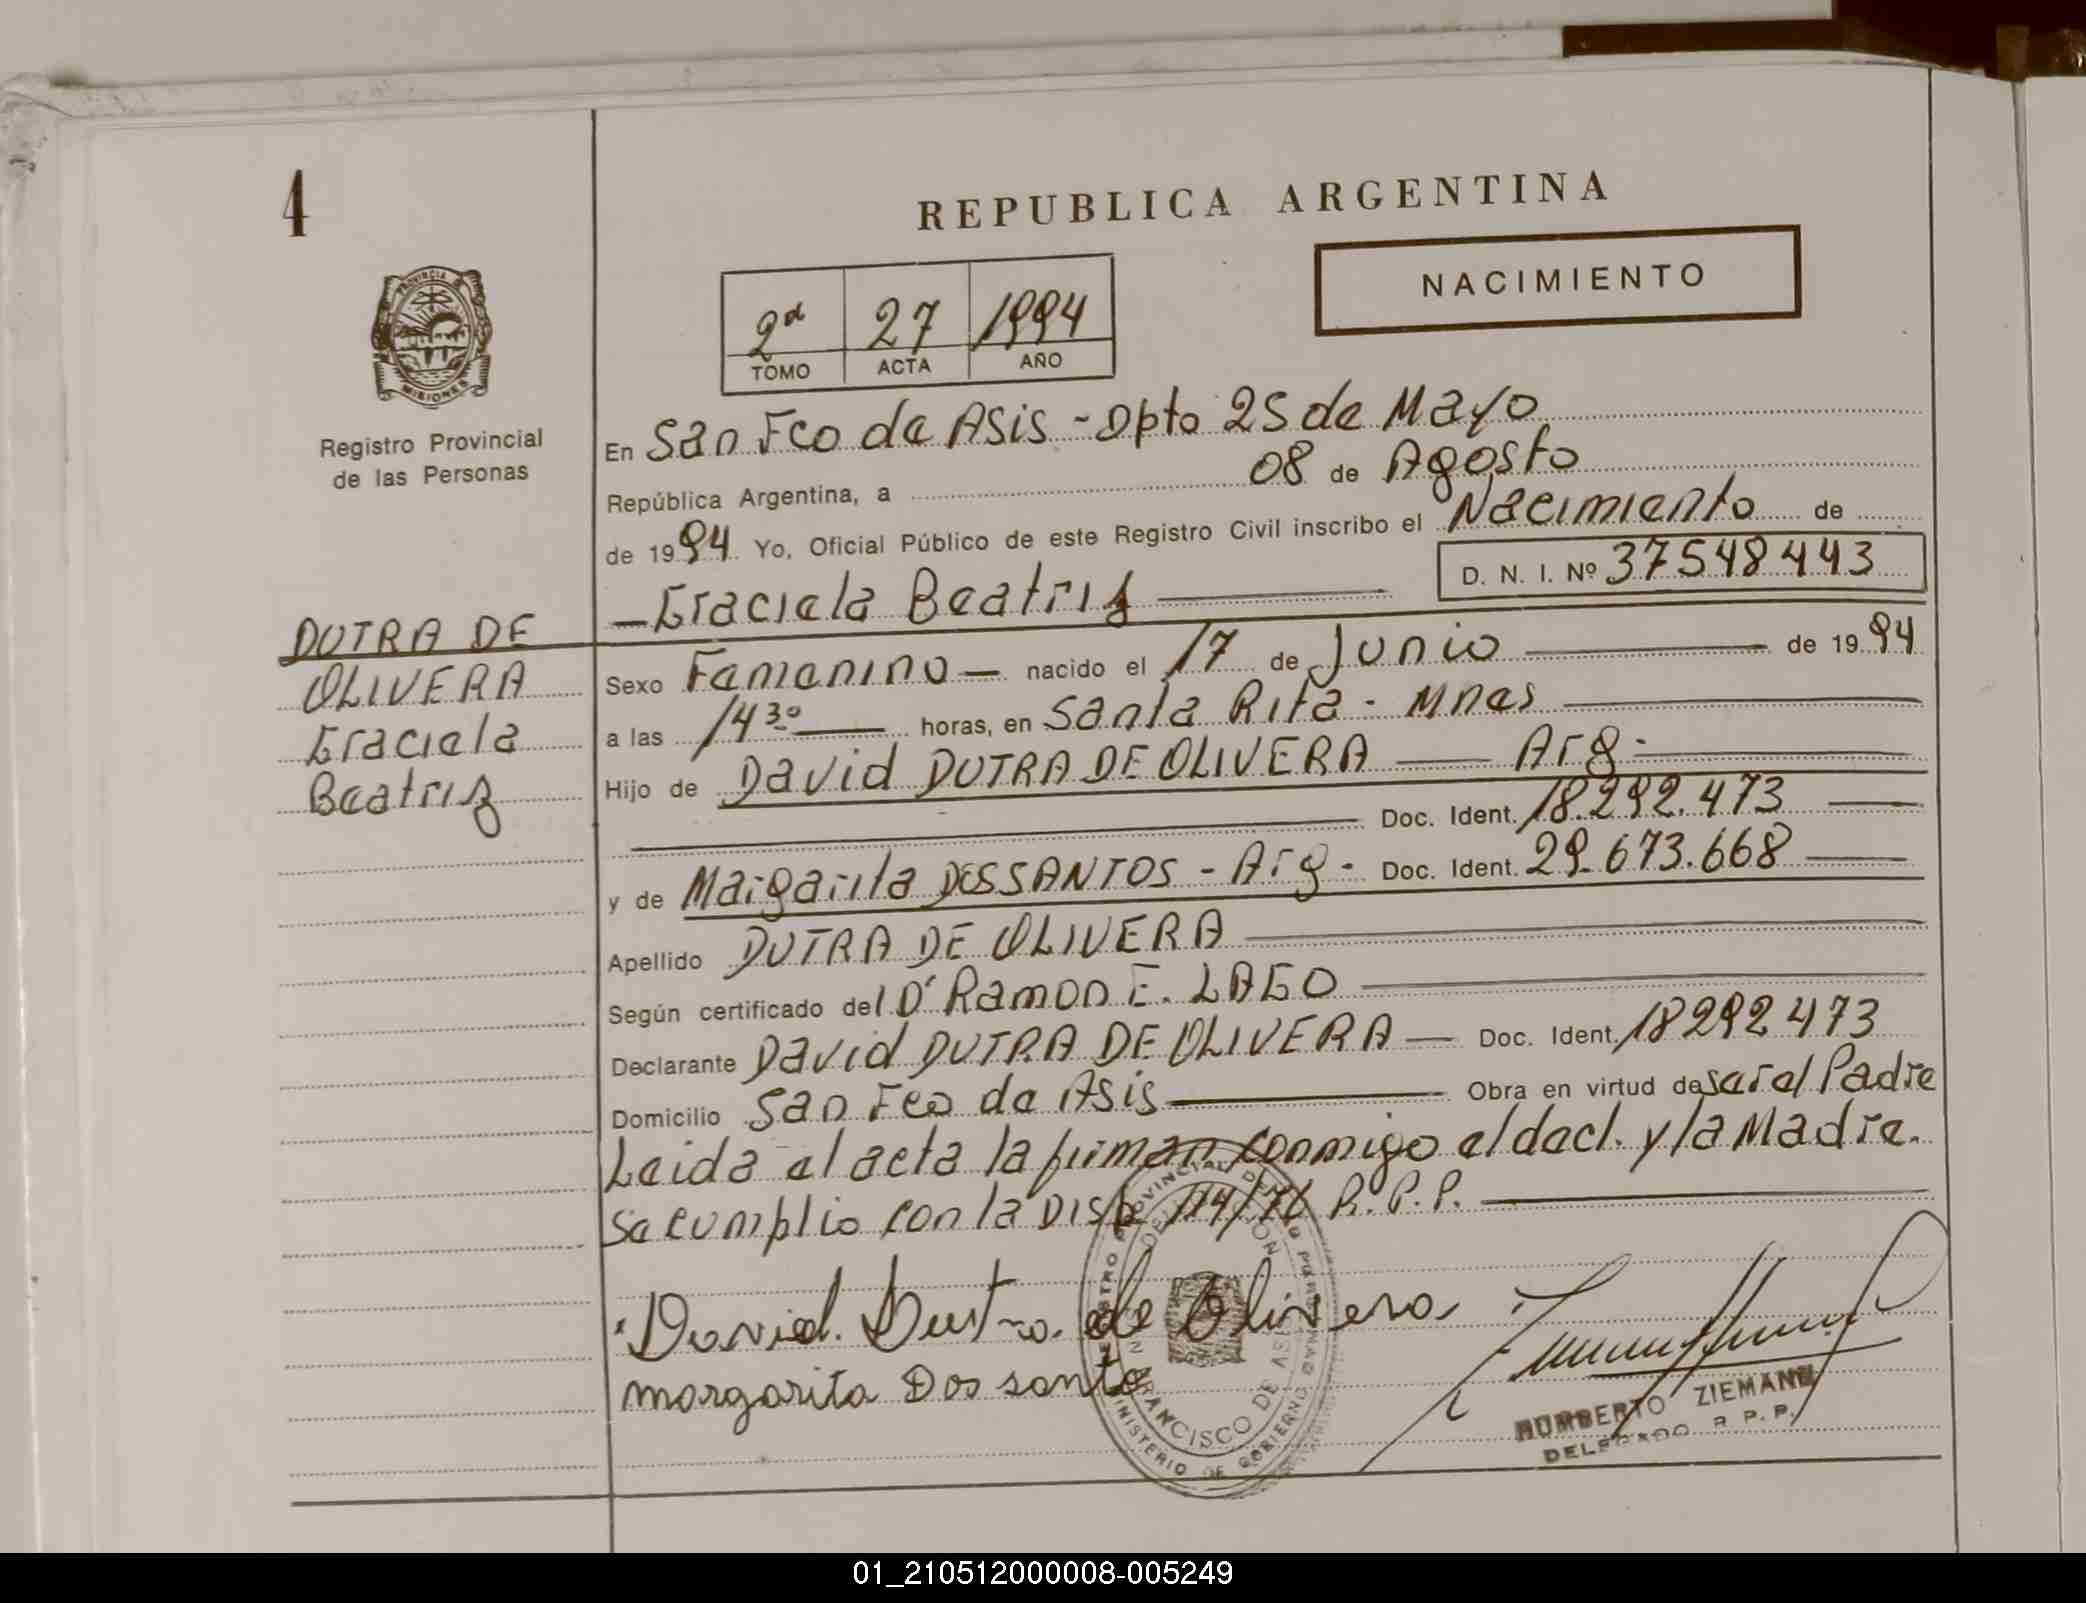 4
REPUBLICA ARGENTINA
NACIMIENTO
2d 27 1994
TOMO ACTA AÑO
PROVINCIA
MISIONES
Registro Provincial
de las Personas
En San Fco de Asis - Dpto 25 de Mayo
República Argentina, a 08 de Agosto
de 1994 Yo, Oficial Público de este Registro Civil inscribo el Nacimiento de
D. N. I. Nº 37548443
— Graciela Beatriz —
DUTRA DE
OLIVERA
Graciela
Beatriz
Sexo Femenino — nacido el 17 de Junio — de 1994
a las 14 30 — horas, en Santa Rita - Mnes —
Hijo de David DUTRA DE OLIVERA — Arg - —
— Doc. Ident. 18.292.473 —
y de Margarita DOS SANTOS - Arg - Doc. Ident. 29.673.668 —
Apellido DUTRA DE OLIVERA —
Según certificado del Dr Ramon E. LAGO —
Declarante David DUTRA DE OLIVERA — Doc. Ident. 18292473
Domicilio San Fco de Asis — Obra en virtud de ser el Padre
Leida el acta la firman conmigo el decl. y la Madre.
Se cumplio con la Disp 114/76 R.P.P. —
David. Dutra. de Olivera
margarita Dos santo
FRANCISCO DE ASIS
MINISTERIO DE GOBIERNO
HUMBERTO ZIEMANN
DELEGADO R.P.P.
01_210512000008-005249